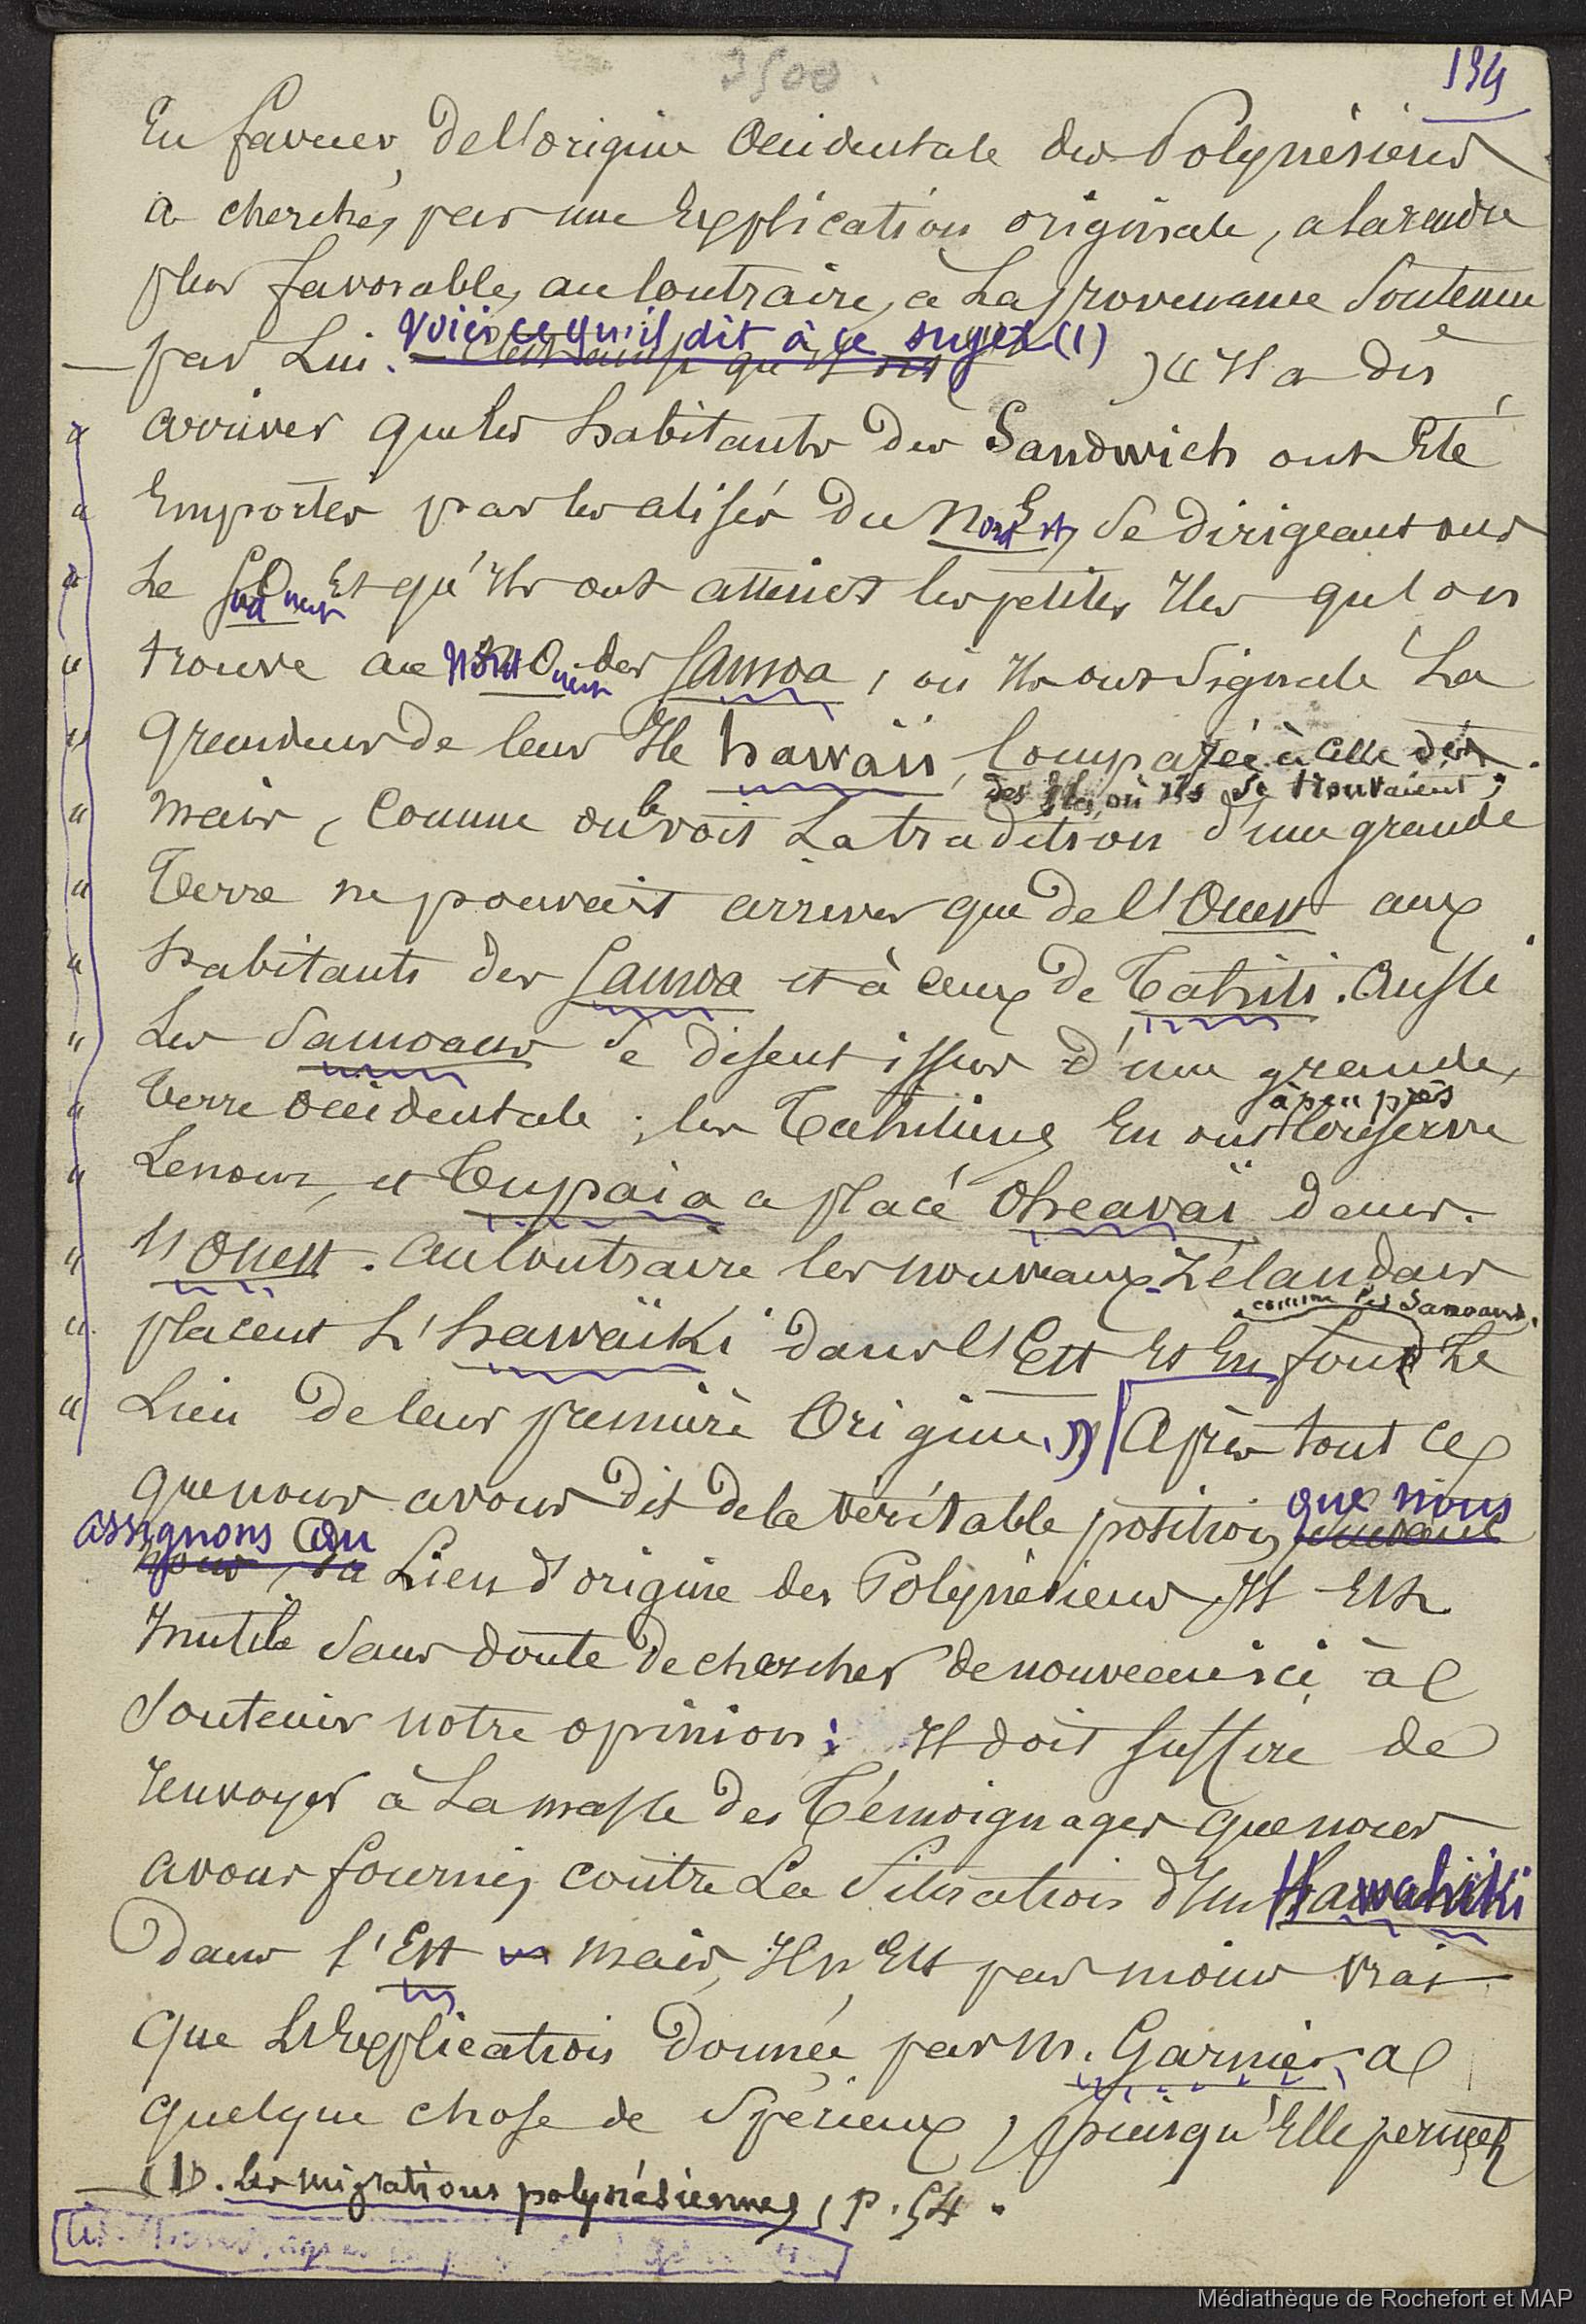 3500
194
En faveur, de l'origine Occidentale des Polynésiens
a cherché, par une Explication originale, à la rendre
plus favorable, au contraire, à La provenance Soutenue
par Lui. Voici ce qu'il dit à ce sujet (1) « Il a dû
arriver que les habitants des Sandwich ont Eté
Emportés par les alisés du Nord Est, Se dirigeant vers
Le Sud ouest Et qu'ils ont atteint les petites Iles que l'on
trouve au Nord Ouest des Samoa, où ils ont Signalé La
Grandeur de leur Ile hawaïi, Comparée à celle
des Iles, où ils se trouvaient ;
mais, Comme on le voit La tradition d'une grande
Terre ne pouvait arriver que de l'Ouest aux
habitants des Samoa et à ceux de Tahiti. Aussi
Les Samoans Se disent issus d'une grande,
Terre Occidentale ; les Tahitiens En ont à peu près Conservé
Le nom, et Tupaia a placé Oheavaï dans
l'Ouest. Au Contraire les nouveaux-Zélandais
placent L'hawaïki dans l'Est Et En font comme les Samoans, Le
Lieu de leur première Origine. » Après tout ce
que nous avons dit de la véritable position que nous
assignons au
Lieu d'origine des Polynésiens, Il Est
Inutile Sans doute de chercher de nouveau ici à
Soutenir notre opinion ; Il doit Suffire de
renvoyer à La masse des Témoignages que nous
avons fournis contre La Situation d'un Hawahiki
Dans l'Est mais, Il n'Est pas moins vrai
que L'Explication Donnée par M. Garnier a
quelque chose de Spécieux, puisqu'Elle permet
(1). Les migrations polynésiennes, p. 54.
Médiathèque de Rochefort et MAP